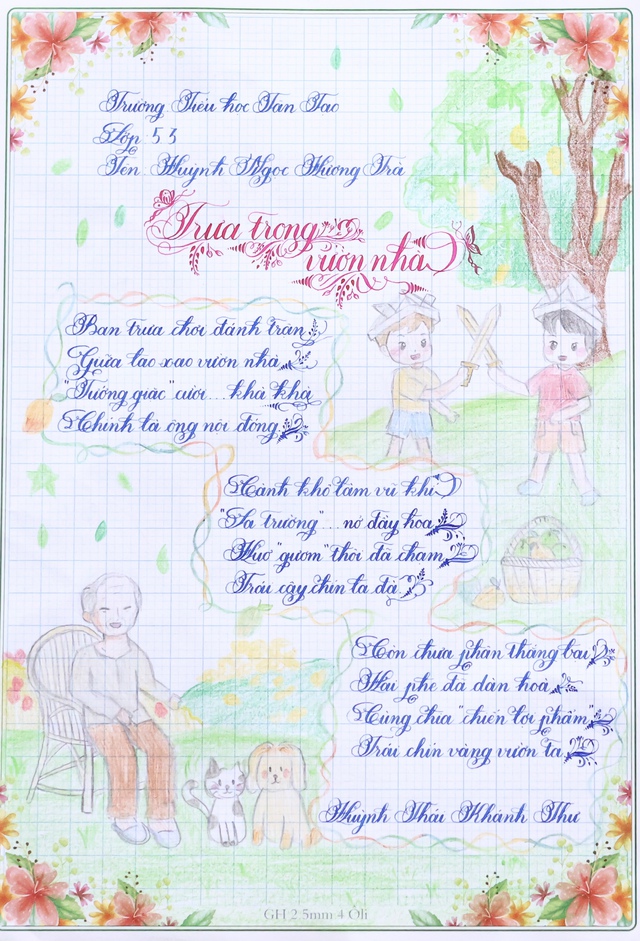 Trường Tiểu học Tân Tạo
Lớp 5 3
Tên Huỳnh Ngọc Hương Trà
Trưa trong
vườn nhà
Ban trưa chơi đánh trận
Giữa lao xao vườn nhà
"Tướng giặc" cười... khà khà
Chính là ông nội đóng
Cành khô làm vũ khí
"Sa trường"... nở đầy hoa
Huơ "gươm" thôi đã chạm
Trái cây chín la đà
Còn chưa phân thắng bại
Hai phe đã dàn hoà
Cùng chia "chiến lợi phẩm"
Trái chín vàng vườn ta
Huỳnh Thái Khánh Thư
GH 2 5mm 4 Ôli